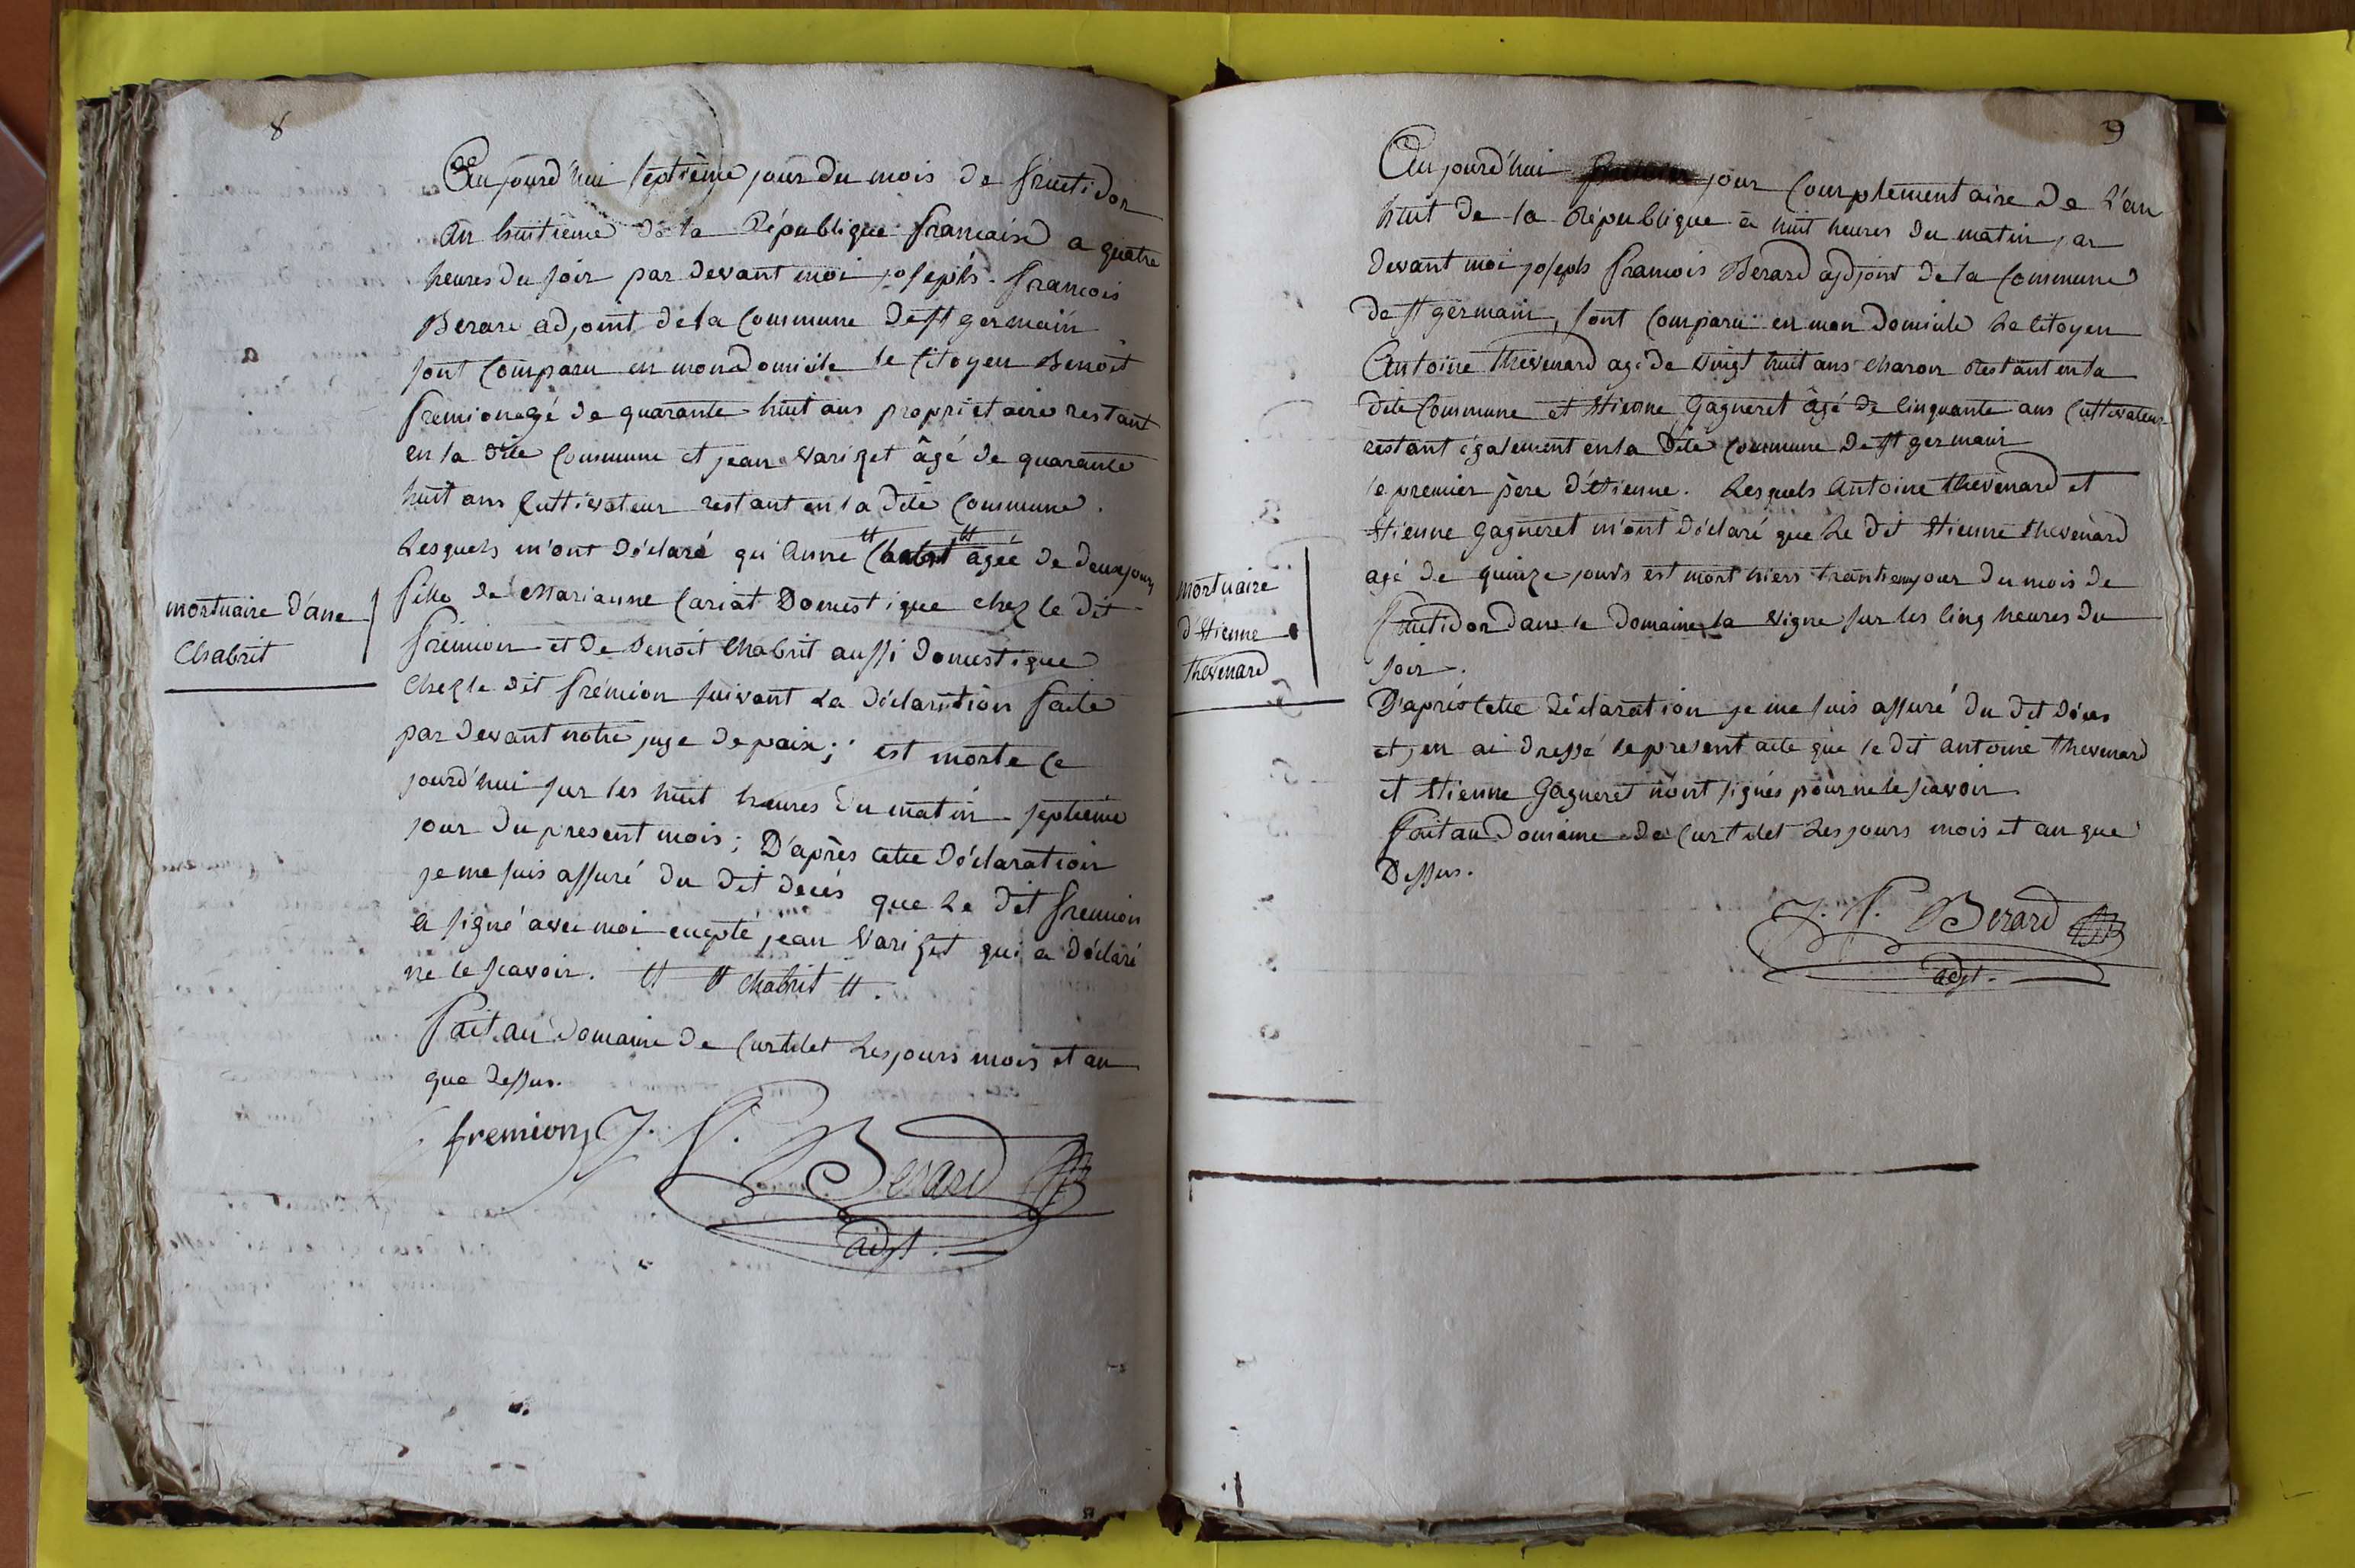 8
Aujourd'hui septième jour du mois de fructidor
an huitième de la République française a quatre
heures du soir par devant moi joseph françois
Berard adjoint de la Commune de st germain
sont Comparu en mon Domicile le Citoyen Benoit
fremion agé de quarante huit ans propriétaire restant
en la dite Commune et jean Variget âgé de quarante
huit ans Cultivateur restant en la dite Commune.
Lesquels m'ont Déclaré qu'Anne agée de deux jours
fille de Marianne Cariat Domestique chez le dit
frémion et de Benoit Chabrit aussi domestique
Chez le dit frémion suivant La déclaration faite
par devant notre juge de paix; est morte Ce
jourd'hui sur les huit heures du matin septième
jour du present mois; D'après cette Déclaration
je me suis assuré du dit decés que Le dit fremion
a signé avec moi excepté jean Variget qui a Déclaré
ne le scavoir. tt tt Chabrit tt.
fait au Domaine de Curtelet Les jours mois et an
que dessus.
fremion J. f. Berard
adjt.
mortuaire d'ane
Chabrit
9
Aujourd'hui jour Complementaire de L'an
huit de la République a huit heures du matin par
devant moi joseph francois Berard adjoint de la Commune
de st germain, sont Comparu en mon Domicile Le Citoyen
Antoine Thevenard agé de vingt huit ans Charon Restant en la
dite Commune et Etienne Gagneret âgé de Cinquante ans Cultivateur
restant également en la Dite Commune de st germain
le premier père d'Etienne. Lesquels Antoine thevenard et
Etienne Gagneret m'ont Déclaré que Le dit Etienne thevenard
agé de quinze jours est mort hiers trantieme jour du mois de
fructidor dans le Domaine la Vigne sur les Cinq heures du
soir.
D'après Cette Déclaration je me suis assuré du dit Décés
et j'en ai dressé le present acte que le dit antoine thevenard
et Etienne Gagneret n'ont signés pour ne le scavoir.
fait au Domaine de Curtelet Les jours mois et an que
Dessus.
J. f. Berard
adjt.
mortuaire
d'Etienne
thevenard